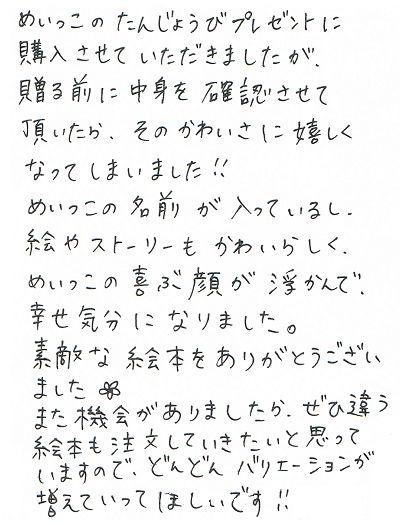 めいっこの たんじょうびプレゼントに
購入させて いただきましたが、
贈る前に 中身を 確認させて
頂いたら、そのかわいさに 嬉しく
なってしまいました!!
めいっこの 名前 が 入っているし、
絵や ストーリーも かわいらしく、
めいっこの 喜ぶ 顔が 浮かんで、
幸せ気分になりました。
素敵な 絵本を ありがとうござい
ました
また機会がありましたら、ぜひ違う
絵本も 注文していきたいと 思って
いますので、どんどん バリエーションが
増えていって ほしいです!!